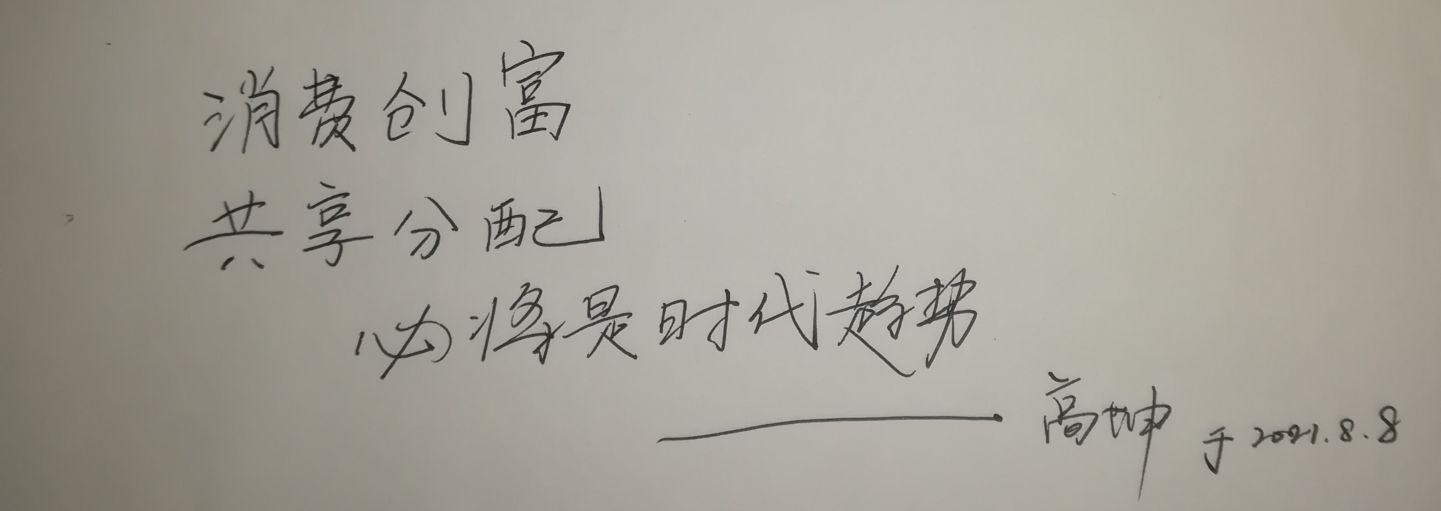 消费创富
共享分配
必将是时代趋势
——高坤 于2021.8.8